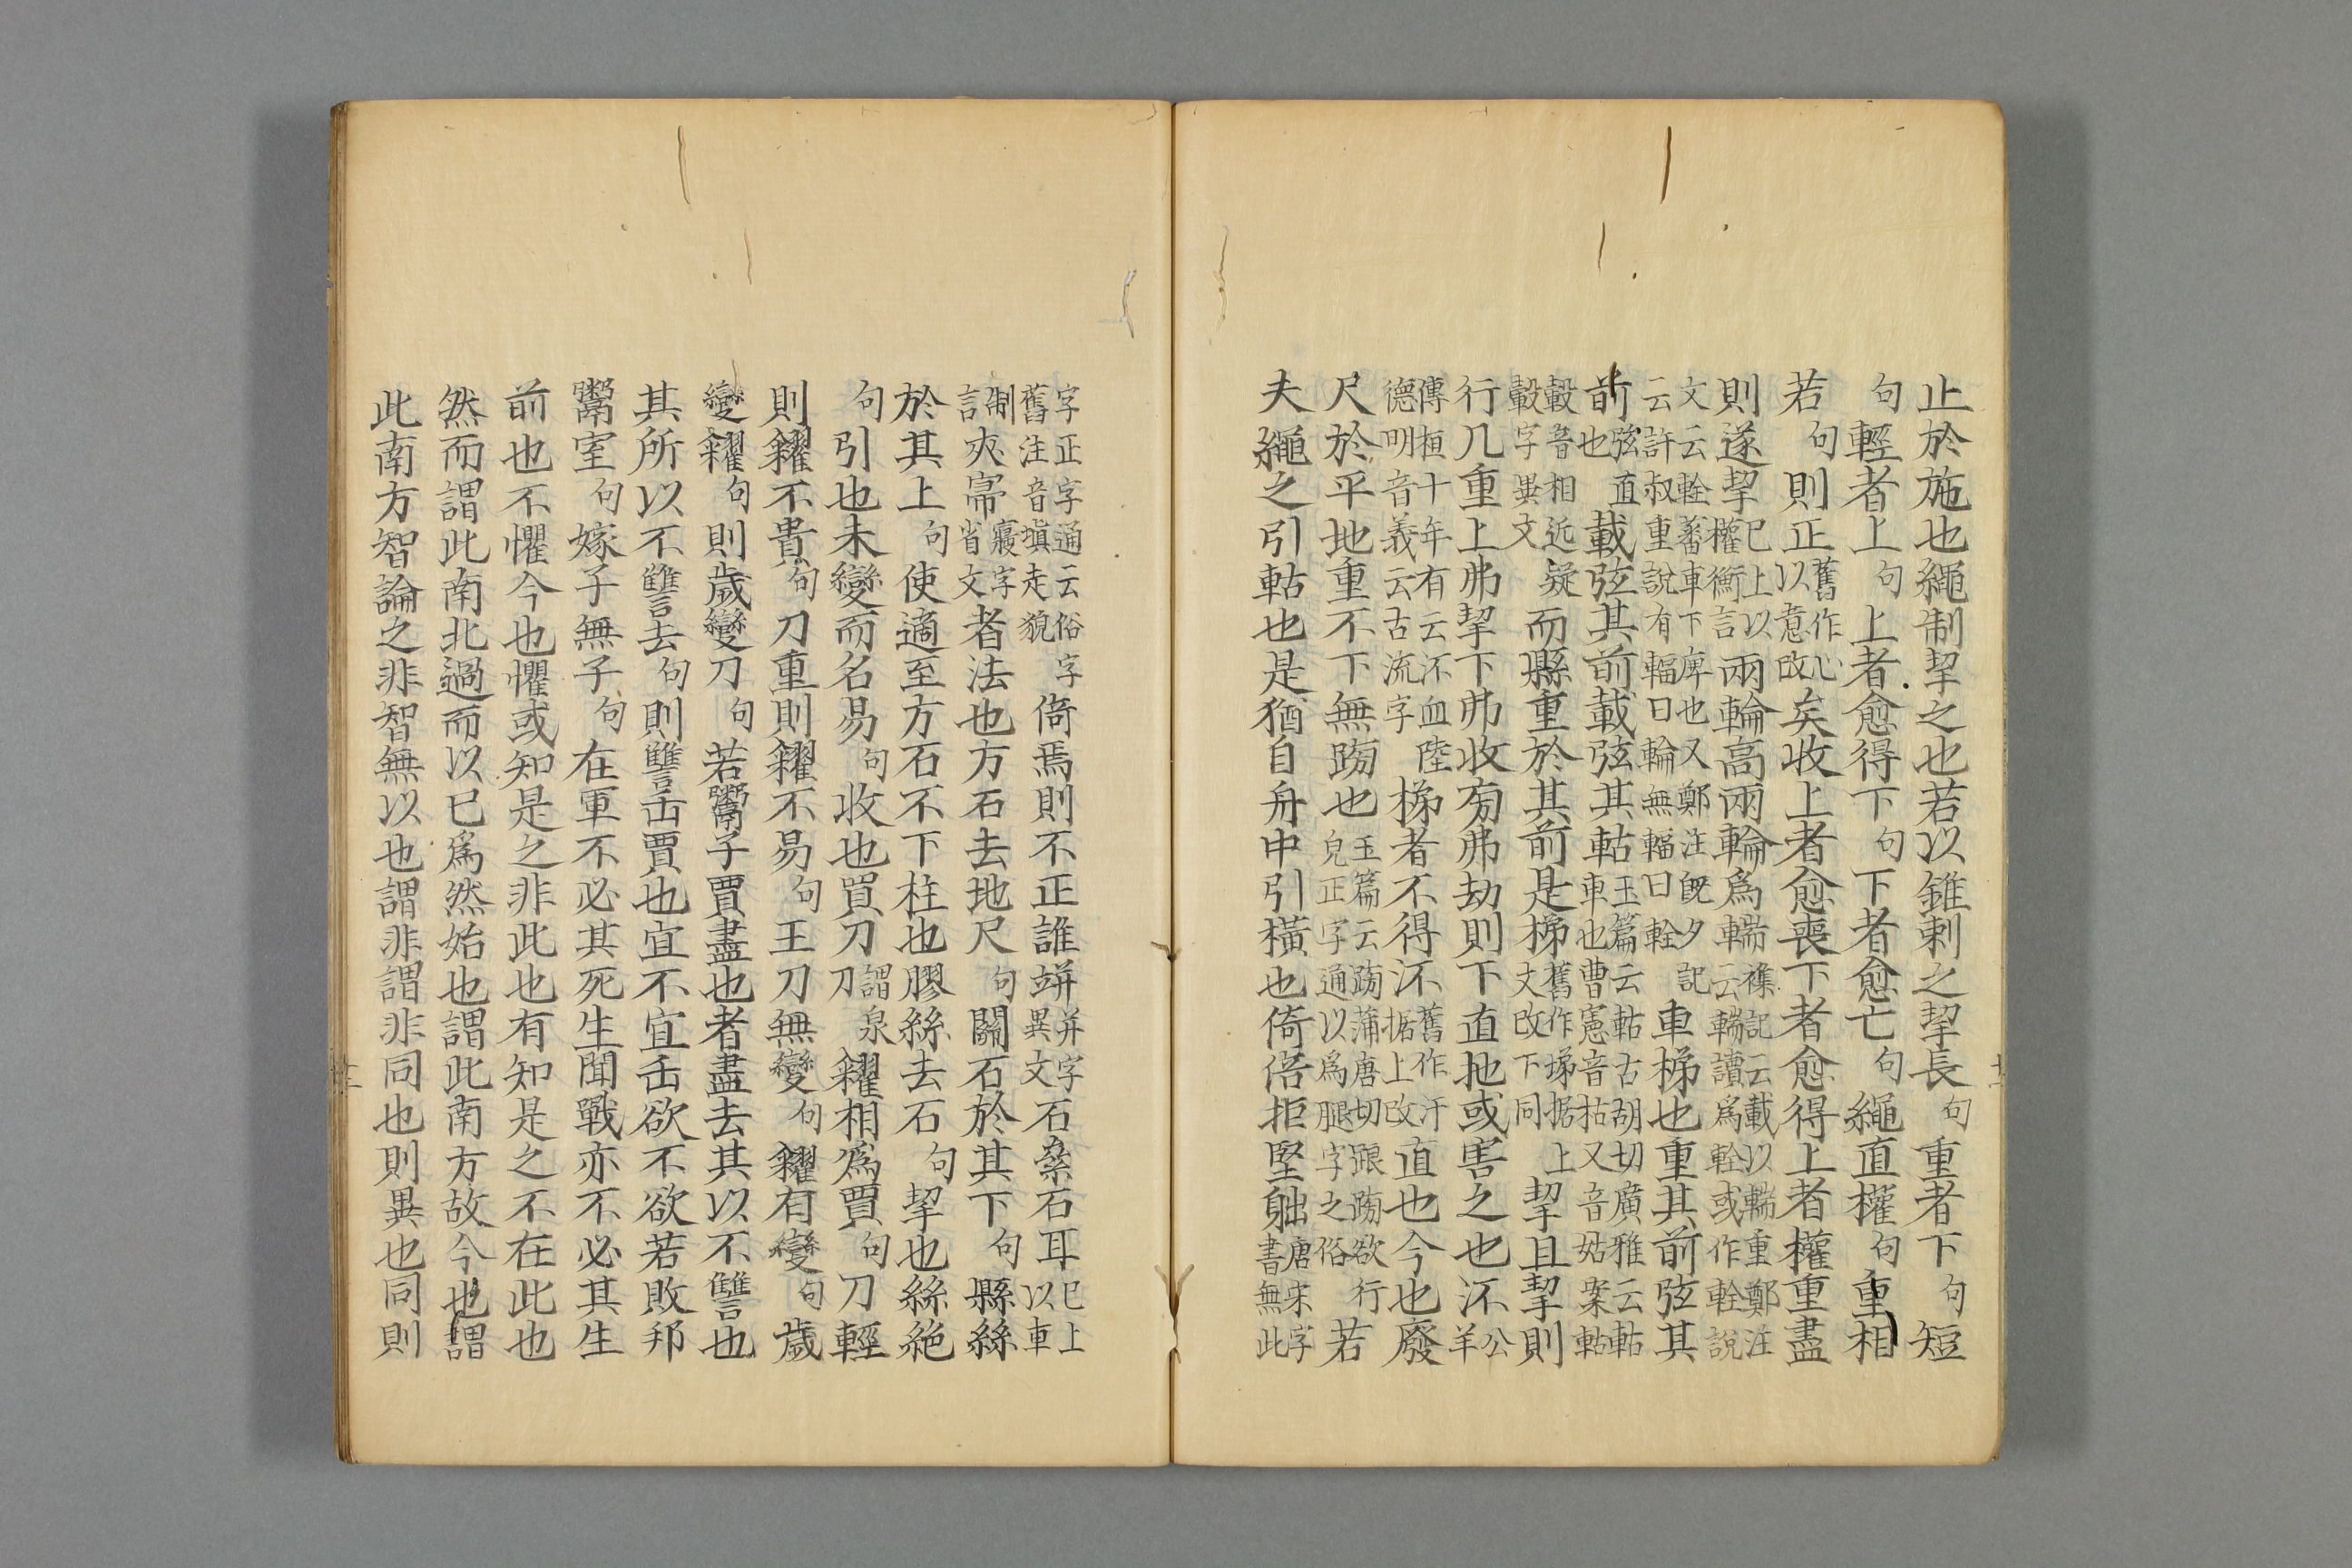 止於施也繩制挈之也若以錐刺之挈長句重者下句短
句輕者上句上者愈得下句下者愈亡句繩直權句重相
若句則正舊作心以意改矣收上者愈喪下者愈得上者權重盡
則遂挈巳上以權衡言兩輪高兩輪爲輲車襍記云載以輲重鄭注云輲讀爲輇或作輇說
文云輇蕃車下庳也又鄭注旣夕記云許叔重說有輻曰輪無輻曰輇車梯也重其前弦其
前弦直也載弦其前載弦其軲玉篇云軲古胡切廣雅云軲車也曹憲音枯又音姑案軲
轂音相近疑轂字異文而縣重於其前是梯舊作㛮据上文改下同挈且挈則
行凡重上弗挈下弗收㫄弗劫則下直扡或害之也㳅公羊
傳桓十年有云㳅血陸德明音義云古流字梯者不得㳅舊作汗据上改直也今也廢
尺於平地重不下無䠙也玉篇云䠙蒲唐切踉䠙欲行皃正字通以爲腿字之俗若
夫繩之引軲也是猶自舟中引橫也倚倍拒堅䠳唐宋字書無此
字正字通云俗字舊注音塡走貌倚焉則不正誰竮并字異文石絫石耳巳上以車
制言夾㝲寢字省文者法也方石去地尺句關石於其下句縣絲
於其上句使適至方石不下柱也膠絲去石句挈也絲絶
句引也未變而名易句收也買刀謂泉刀糴相爲賈句刀輕
則糴不貴句刀重則糴不易句王刀無變句糴有變句歲
變糴句則歲變刀句若鬻子賈盡也者盡去其以不讐也
其所以不讐去句則讐缶賈也宜不宜缶欲不欲若敗邦
鬻室句嫁子無子句在軍不必其死生聞戰亦不必其生
前也不懼今也懼或知是之非此也有知是之不在此也
然而謂此南北過而以巳爲然始也謂此南方故今也謂
此南方智論之非智無以也謂非謂非同也則異也同則